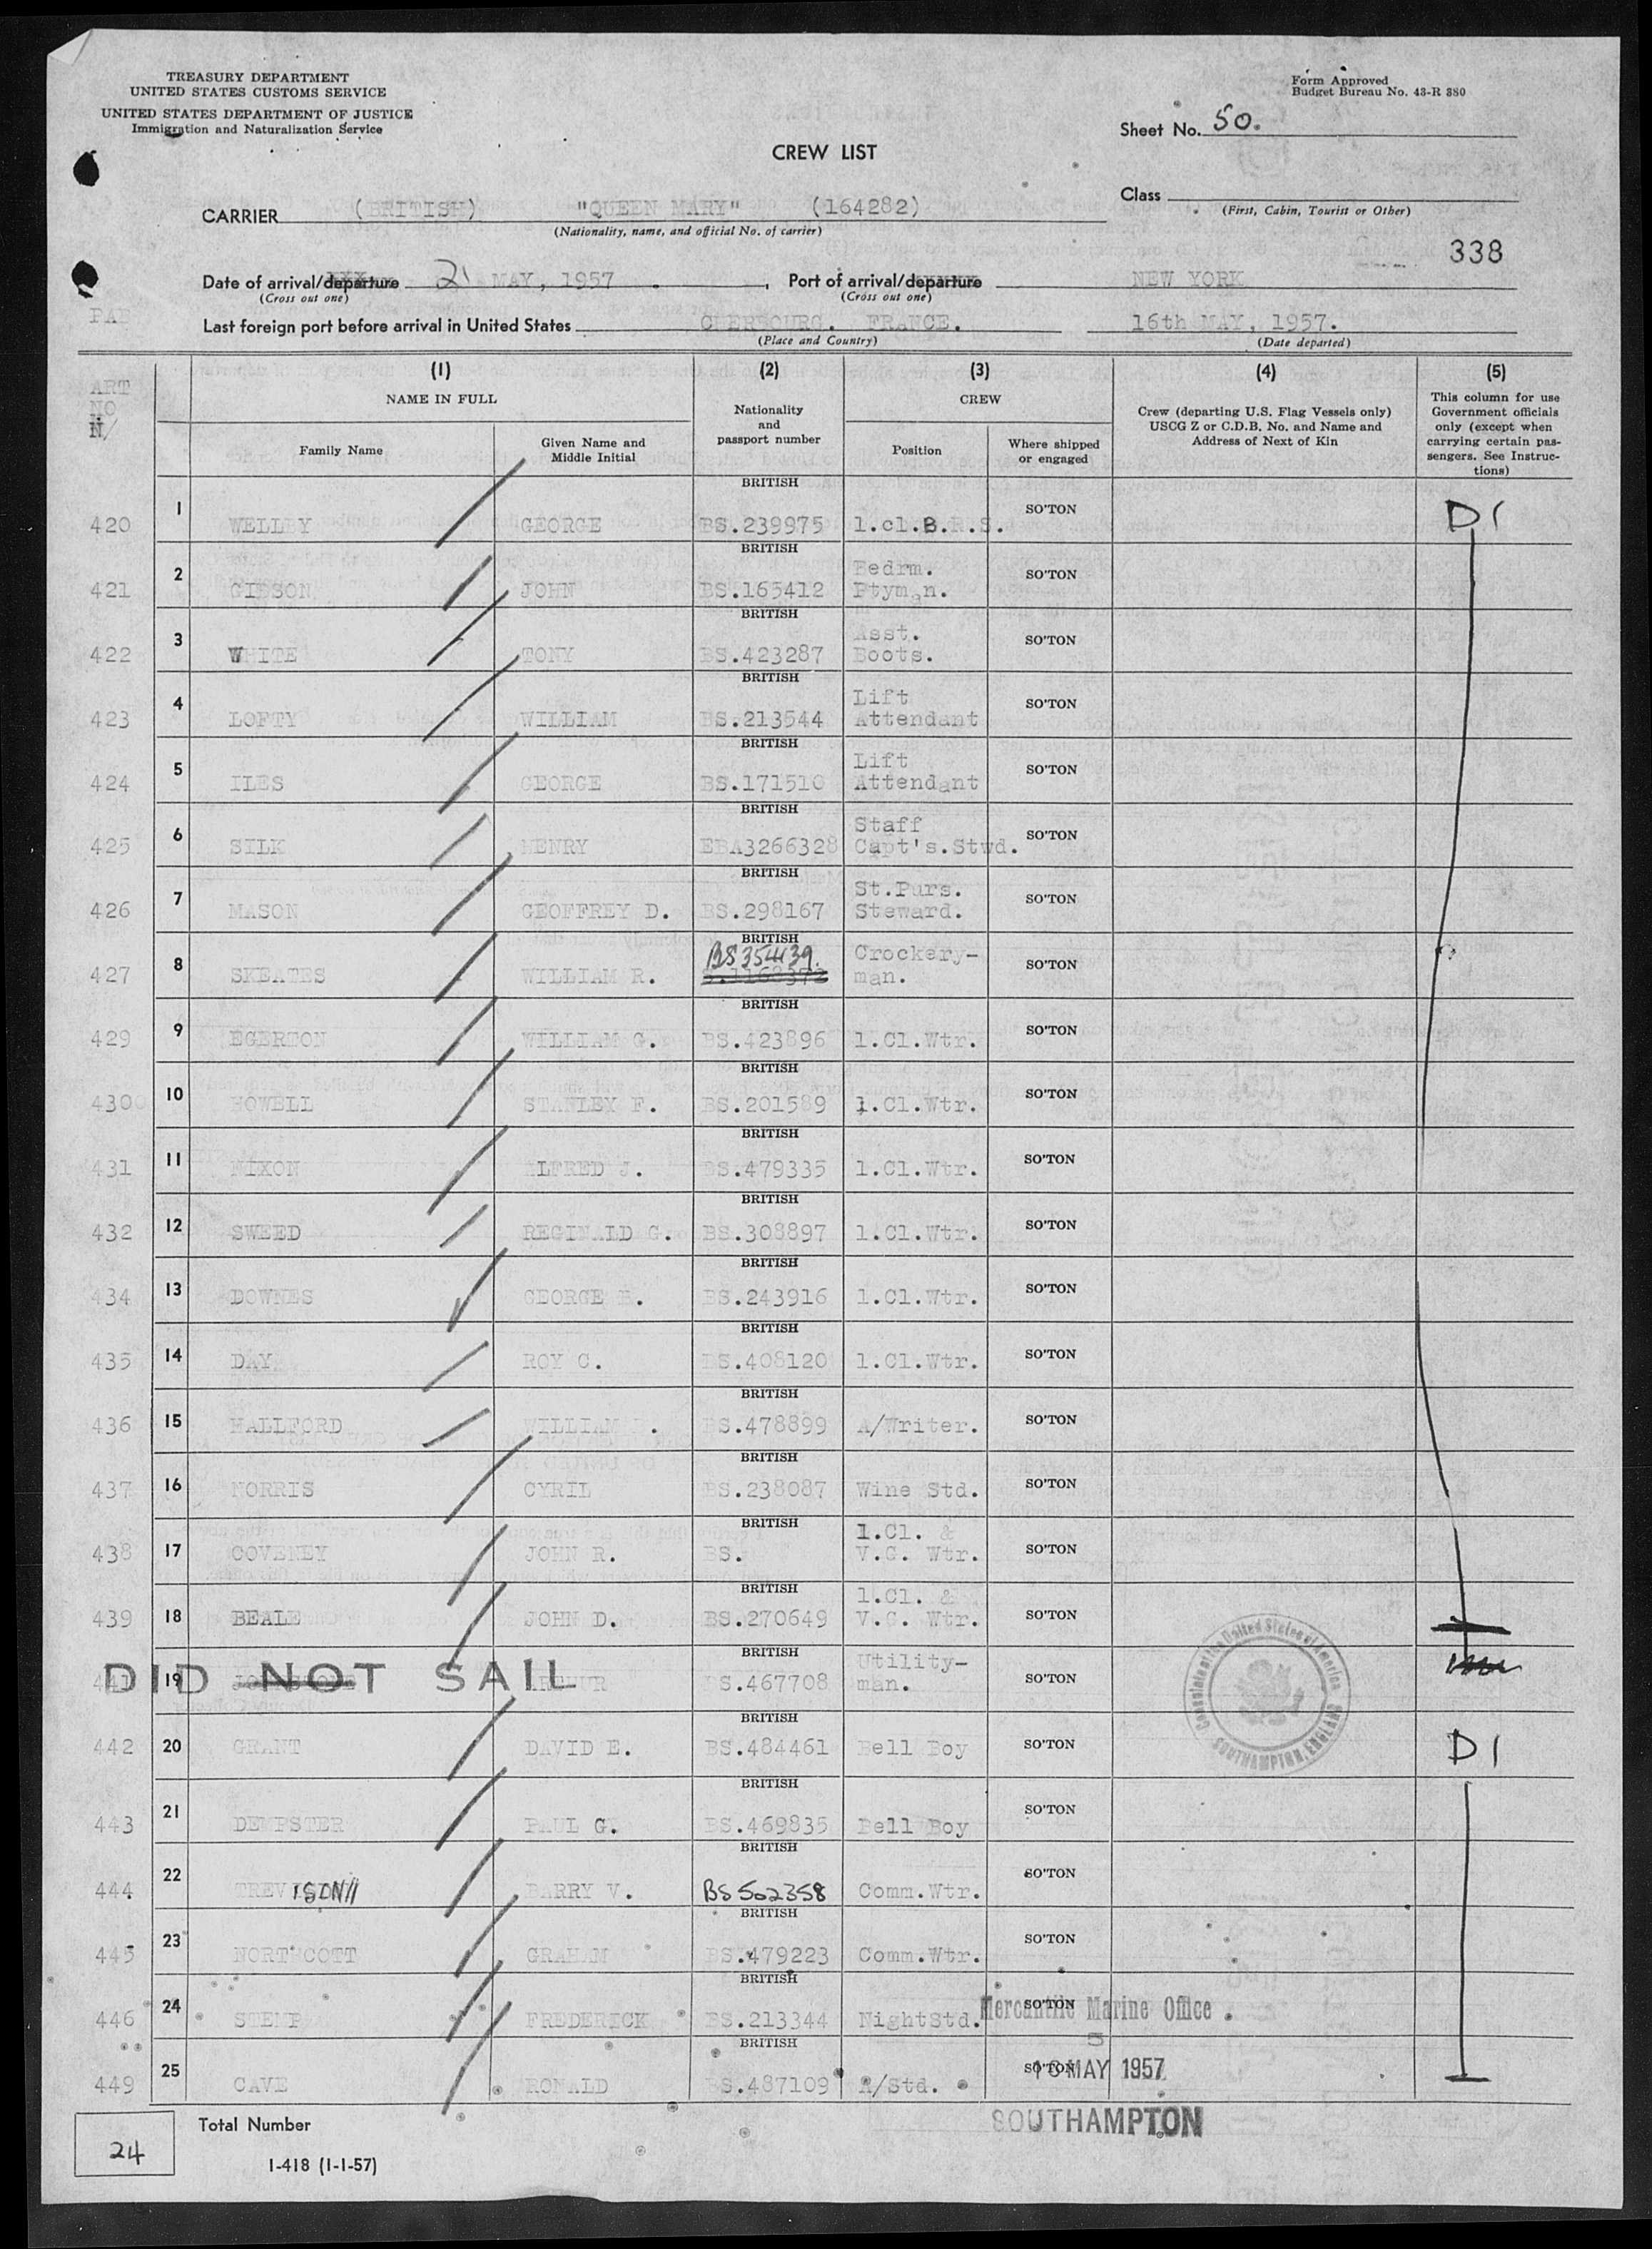 TREASURY DEPARTMENT
UNITED STATES CUSTOMS SERVICE
UNITED STATES DEPARTMENT OF JUSTICE
Immigration and Naturalization Service
Form Approved
Budget Bureau No. 43-R 380
Sheet No. 50.
CREW LIST
Class
(First, Cabin, Tourist or Other)
CARRIER (BRITISH) "QUEEN MARY" (164282)
(Nationality, name, and official No. of carrier)
338
Date of arrival/departure 21 MAY, 1957 , Port of arrival/departure NEW YORK
(Cross out one) (Cross out one)
Last foreign port before arrival in United States CHERBOURG. FRANCE. 16th MAY, 1957.
(Place and Country) (Date departed)
ART NO
(1) (2) (3) (4) (5)
NAME IN FULL
Nationality and passport number
CREW
Crew (departing U.S. Flag Vessels only) USCG Z or C.D.B. No. and Name and Address of Next of Kin
This column for use Government officials only (except when carrying certain passengers. See Instructions)
Family Name
Given Name and Middle Initial
Position
Where shipped or engaged
420 1 WELLBY GEORGE BRITISH BS.239975 1.cl.B.R.S. SO'TON D1
421 2 GIBSON JOHN BRITISH BS.165412 Bedrm. Ptyman. SO'TON
422 3 WHITE TONY BRITISH BS.423287 Asst. Boots. SO'TON
423 4 LOFTY WILLIAM BRITISH BS.213544 Lift Attendant SO'TON
424 5 ILES GEORGE BRITISH BS.171510 Lift Attendant SO'TON
425 6 SILK HENRY BRITISH EBA3266328 Staff Capt's.Stwd. SO'TON
426 7 MASON GEOFFREY D. BRITISH BS.298167 St.Purs. Steward. SO'TON
427 8 SKEATES WILLIAM R. BRITISH BS354439. Crockery-man. SO'TON
429 9 EGERTON WILLIAM G. BRITISH BS.423896 1.Cl.Wtr. SO'TON
430 10 HOWELL STANLEY F. BRITISH BS.201589 1.Cl.Wtr. SO'TON
431 11 NIXON ALFRED J. BRITISH BS.479335 1.Cl.Wtr. SO'TON
432 12 SWEED REGINALD G. BRITISH BS.308897 1.Cl.Wtr. SO'TON
434 13 DOWNES GEORGE BRITISH BS.243916 1.Cl.Wtr. SO'TON
435 14 DAY ROY C. BRITISH BS.408120 1.Cl.Wtr. SO'TON
436 15 HALLFORD WILLIAM BRITISH BS.478899 A/Writer. SO'TON
437 16 NORRIS CYRIL BRITISH BS.238087 Wine Std. SO'TON
438 17 COVENEY JOHN R. BRITISH BS. 1.Cl. & V.G. Wtr. SO'TON
439 18 BEALE JOHN D. BRITISH BS.270649 1.Cl. & V.G. Wtr. SO'TON
441 19 DID NOT SAIL ARTHUR BRITISH BS.467708 Utility-man. SO'TON
442 20 GRANT DAVID E. BRITISH BS.484461 Bell Boy SO'TON D1
443 21 DEMPSTER PAUL G. BRITISH BS.469835 Bell Boy SO'TON
444 22 TREVISON BARRY V. BRITISH BS 502358 Comm.Wtr. SO'TON
445 23 NORTHCOTT GRAHAM BRITISH BS.479223 Comm.Wtr. SO'TON
446 24 STEMP FREDERICK BRITISH BS.213344 NightStd. SO'TON
449 25 CAVE RONALD BRITISH BS.487109 A/Std. SO'TON
Consulate of the United States of America
SOUTHAMPTON, ENGLAND
Mercantile Marine Office
5
16 MAY 1957
SOUTHAMPTON
24 Total Number
I-418 (1-1-57)